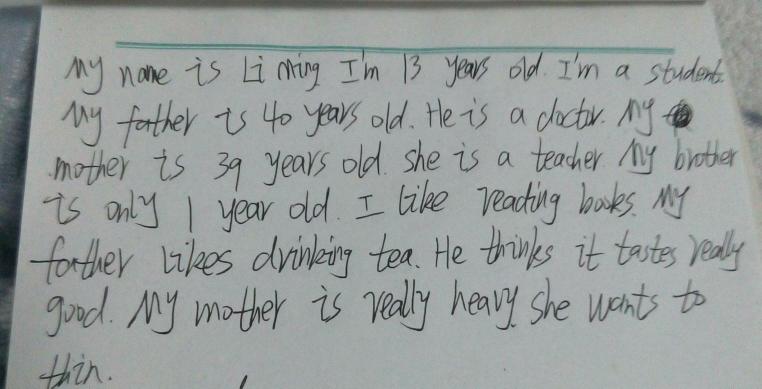 My name is Li Ming I'm 13 years old. I'm a student.
My father is 40 years old. He is a doctor. My
mother is 39 years old. she is a teacher. My brother
is only 1 year old. I like reading books. My
father likes drinking tea. He thinks it tastes really
good. My mother is really heavy. she wants to
thin.